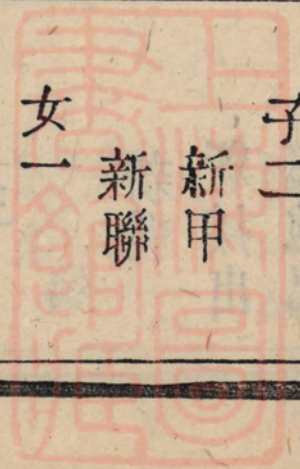 子二
新甲
新聯
女一